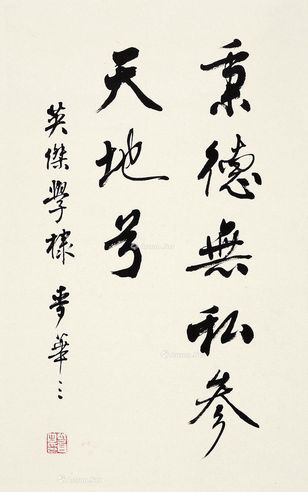 秉德無私參
天地兮
英傑學棣 麥華三